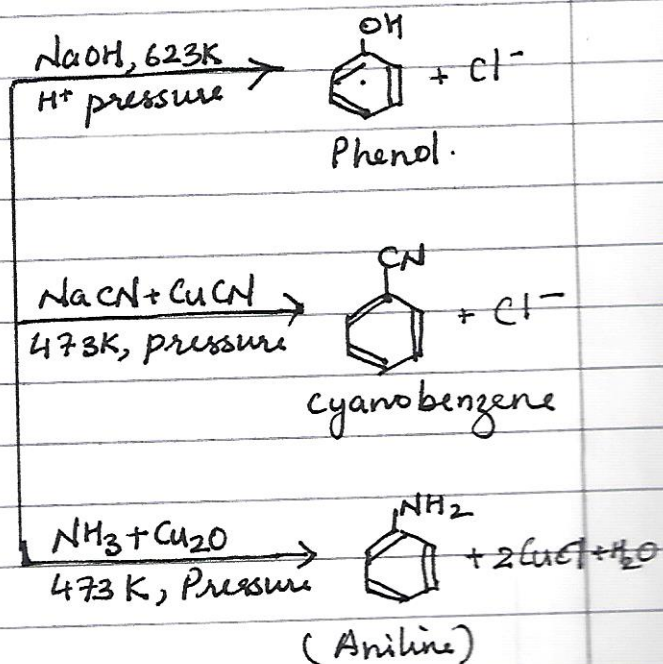 OH
NaOH, 623K
H+ pressure
+ Cl⁻
Phenol.
CN
NaCN + CuCN
473K, pressure
+ Cl⁻
cyanobenzene
NH2
NH3 + Cu2O
473 K, Pressure
+ 2CuCl + H2O
(Aniline)